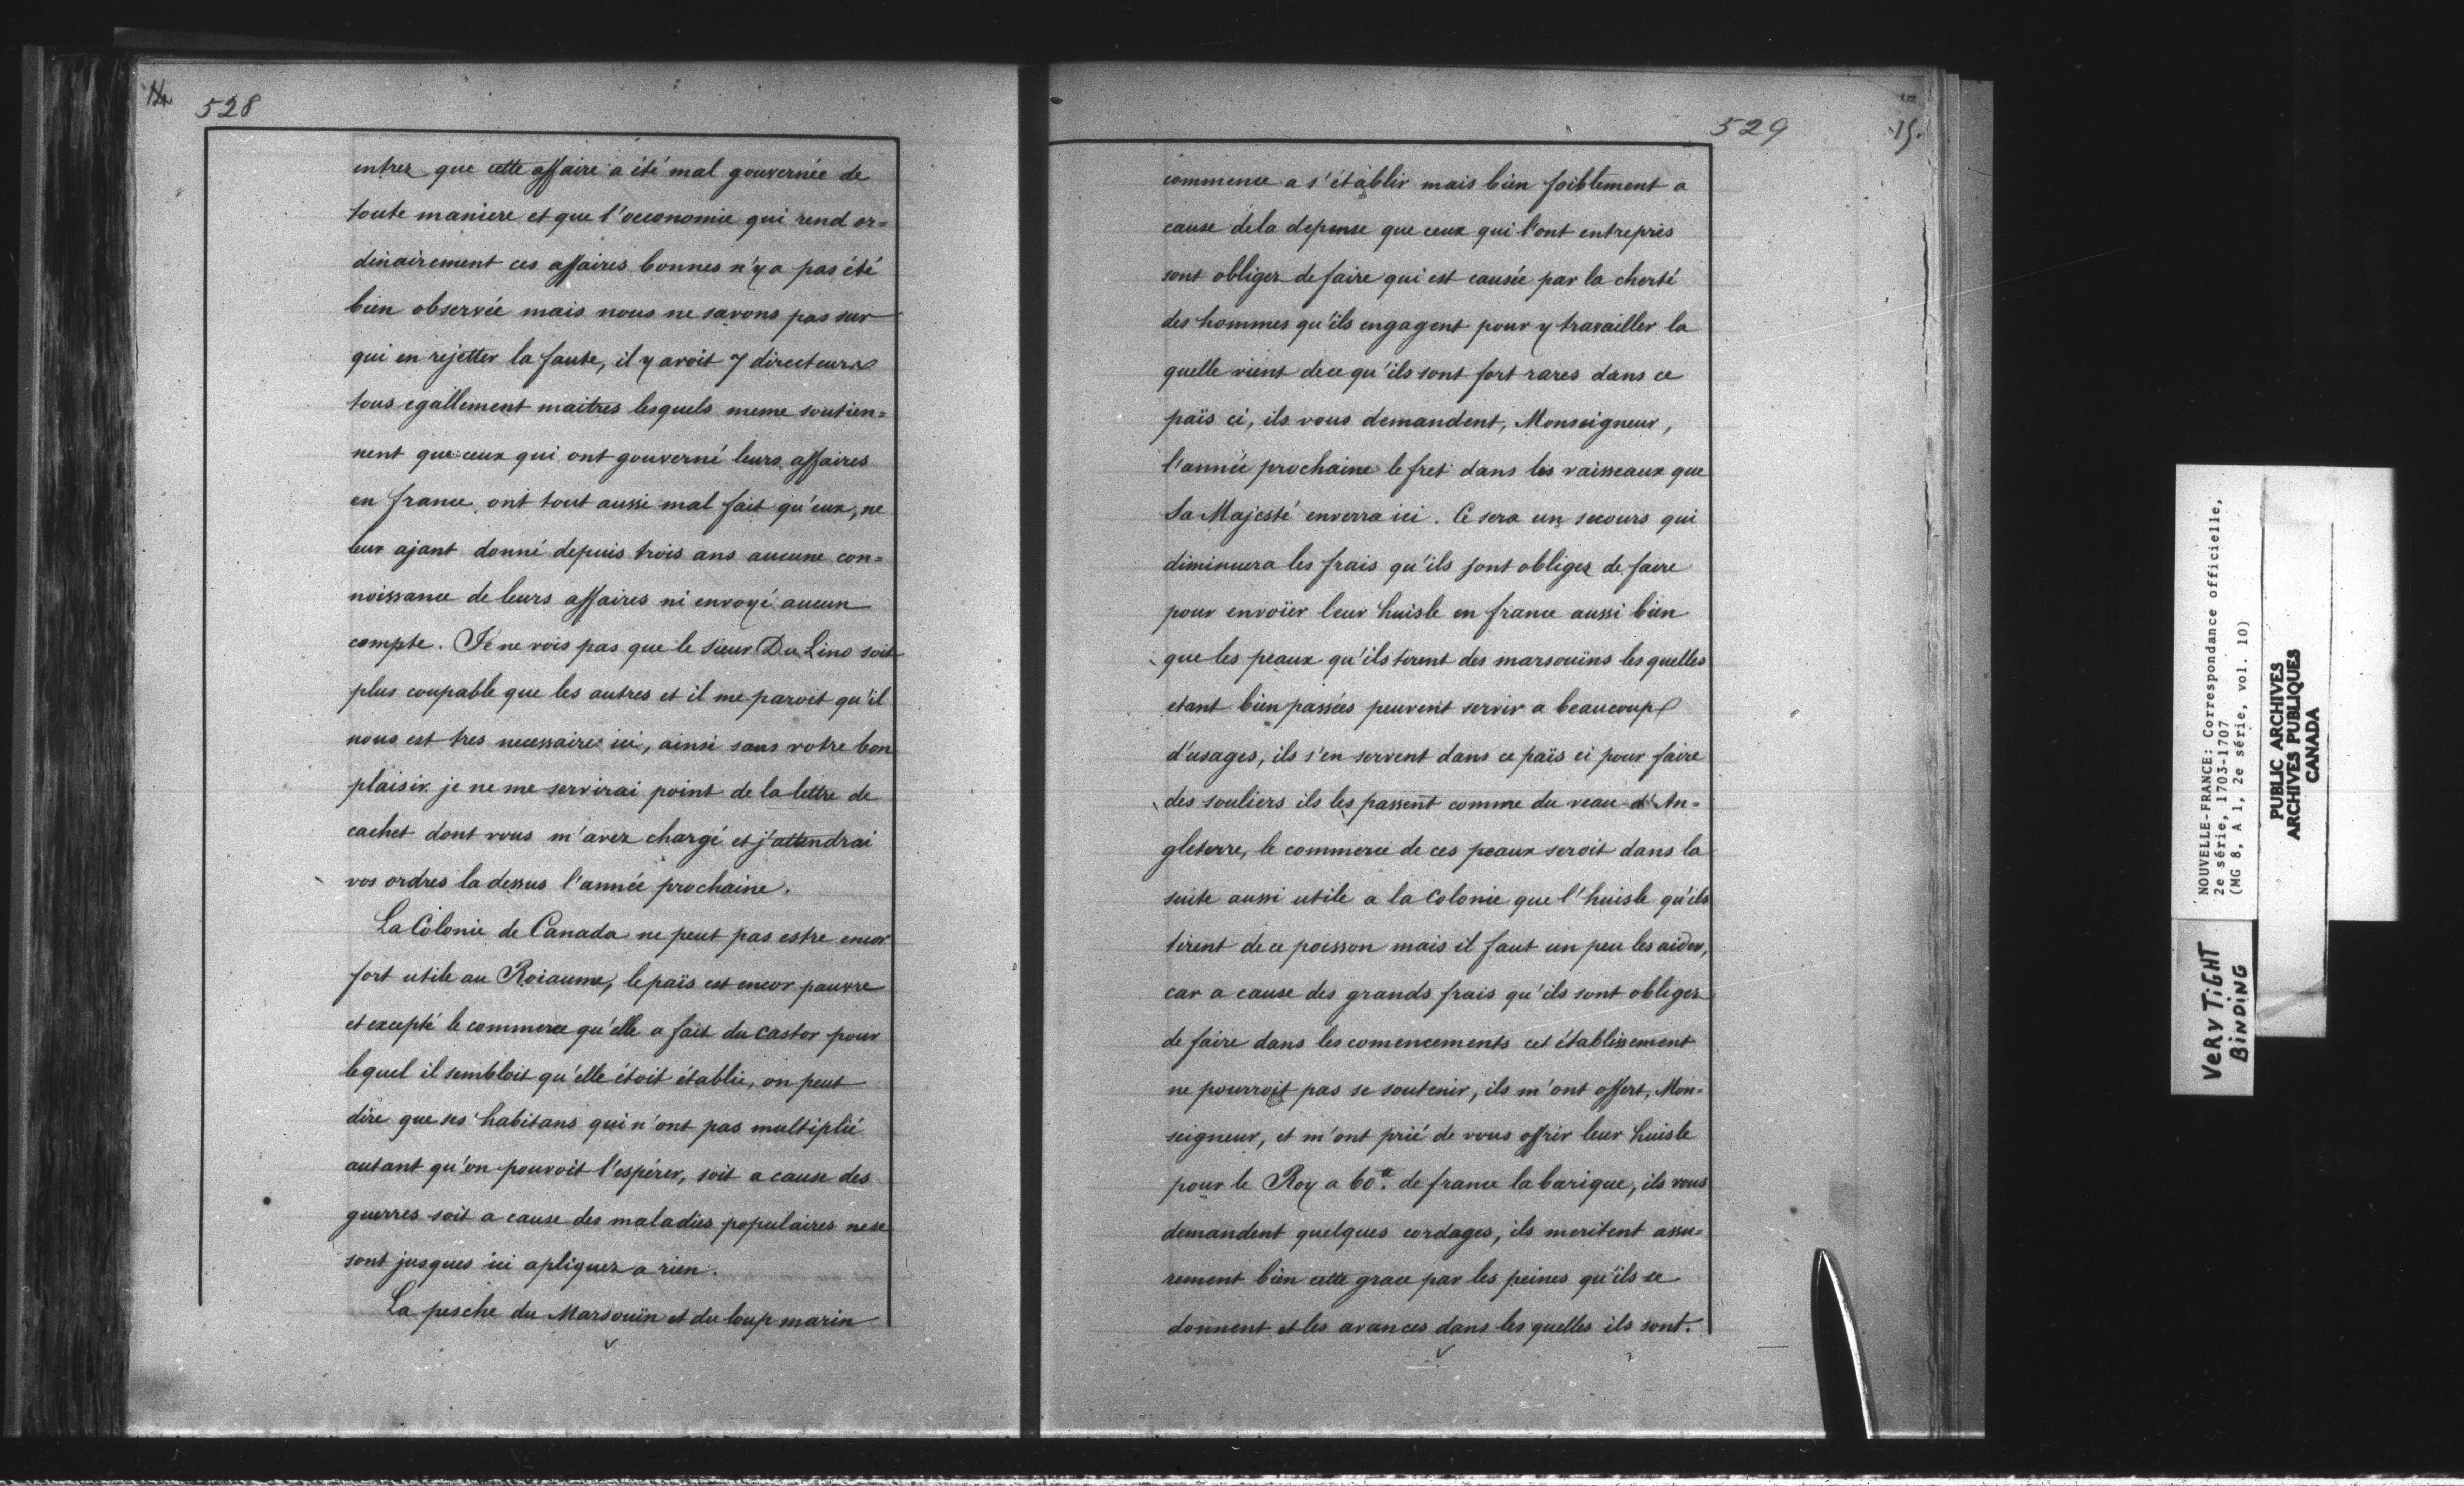 14
528
entrer que cette affaire a été mal gouvernée de
toute maniere et que l'oeconomie qui rend or=
dinairement ces affaires bonnes n'y a pas été
bien observée mais nous ne savons pas sur
qui en rejetter la faute, il y avoit 7 directeurs
tous egallement maitres lesquels meme soutien=
nent que ceux qui ont gouverné leurs affaires
en france, ont tout aussi mal fait qu'eux, ne
leur ajant donné depuis trois ans aucune con=
noissance de leurs affaires ni envoyé aucun
compte. Je ne vois pas que le sieur Du Lino soit
plus coupable que les autres et il me paroit qu'il
nous est tres necessaire ici, ainsi sans votre bon
plaisir je ne me servirai point de la lettre de
cachet dont vous m'avez chargé et j'attendrai
vos ordres la dessus l'année prochaine.
La Colonie de Canada ne peut pas estre encor
fort utile au Roiaume, le païs est encor pauvre
et excepté le commerce qu'elle a fait du castor pour
lequel il sembloit qu'elle étoit établie, on peut
dire que ses habitans qui n'ont pas multiplié
autant qu'on pouvoit l'espérer, soit a cause des
guerres soit a cause des maladies populaires ne se
sont jusques ici apliquez a rien.
La pesche du Marsouin et du loup marin
529
15.
commence a s'établir mais bien foiblement a
cause de la depense que ceux qui l'ont entrepris
sont obligez de faire qui est causée par la cherté
des hommes qu'ils engagent pour y travailler la
quelle vient de ce qu'ils sont fort rares dans ce
païs ci, ils vous demandent, Monseigneur,
l'année prochaine le fret dans les vaisseaux que
Sa Majesté enverra ici. Ce sera un secours qui
diminuera les frais qu'ils sont obligez de faire
pour envoïer leur huisle en france aussi bien
que les peaux qu'ils tirent des marsouins les quelles
etant bien passées peuvent servir a beaucoup
d'usages, ils s'en servent dans ce païs ci pour faire
des souliers ils les passent comme du veau d'An=
gleterre, le commerce de ces peaux seroit dans la
suite aussi utile a la Colonie que l'huisle qu'ils
tirent de ce poisson mais il faut un peu les aider,
car a cause des grands frais qu'ils sont obligez
de faire dans les comencements cet établissement
ne pourroit pas se soutenir, ils m'ont offert, Mon=
seigneur, et m'ont prié de vous offrir leur huisle
pour le Roy a 60ᵗᵗ. de france la barique, ils vous
demandent quelques cordages, ils meritent assu=
rement bien cette grace par les peines qu'ils se
donnent et les avances dans les quelles ils sont.
NOUVELLE-FRANCE: Correspondance officielle,
2e série, 1703-1707
(MG 8, A 1, 2e série, vol. 10)
PUBLIC ARCHIVES
ARCHIVES PUBLIQUES
CANADA
VERY TiGHT
BiNDiNG